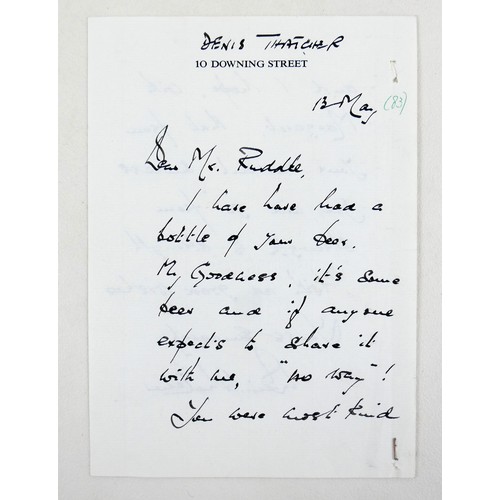 DENIS THATCHER
10 DOWNING STREET
13 May (83)
Dear Mr. Ruddle,
I have have had a
bottle of your beer.
My Goodness, it's some
beer and if anyone
expects to share it
with me, "no way"!
You were most kind